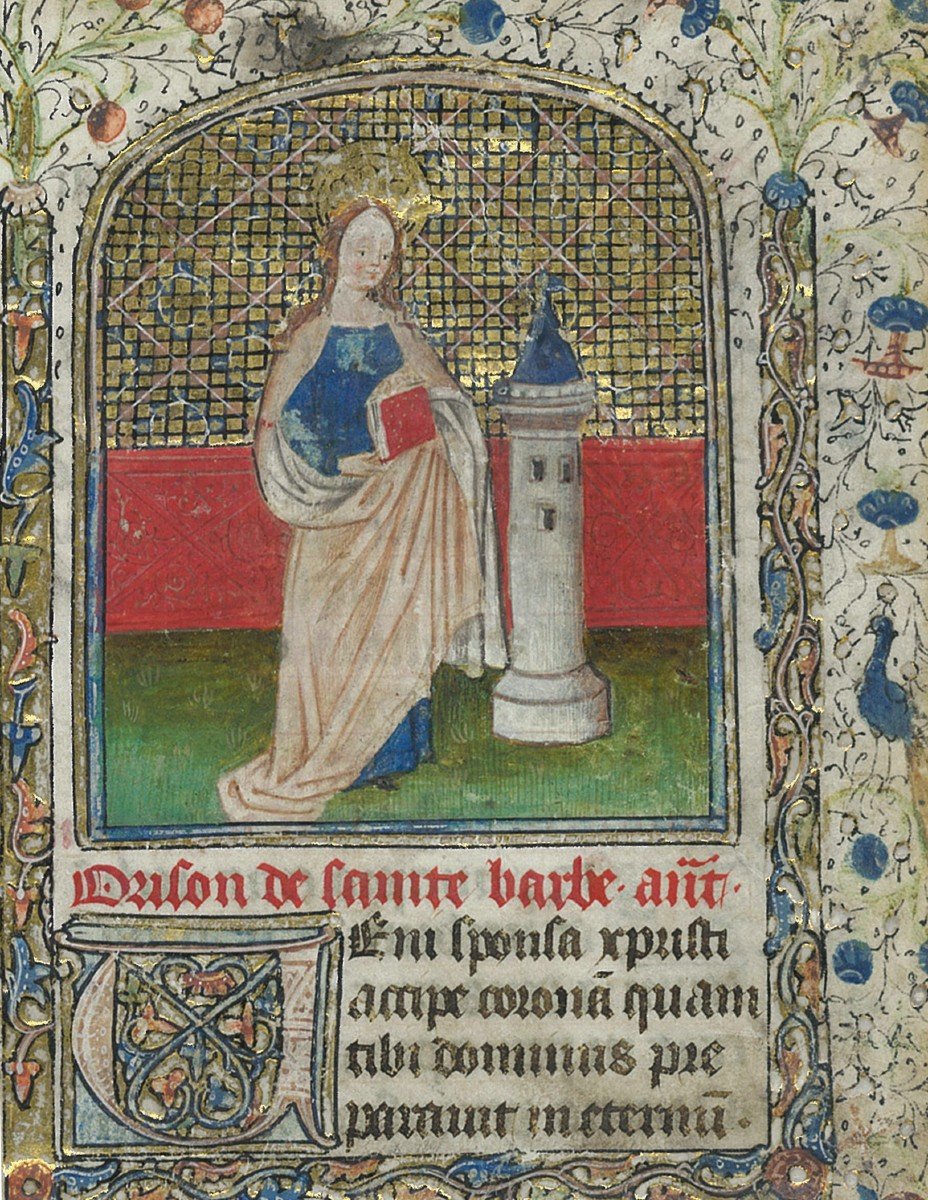 Orison de sainte barbe. añt.
VEni sponsa xpristi
accipe coronā quam
tibi dominus pre
parauit in eternū.